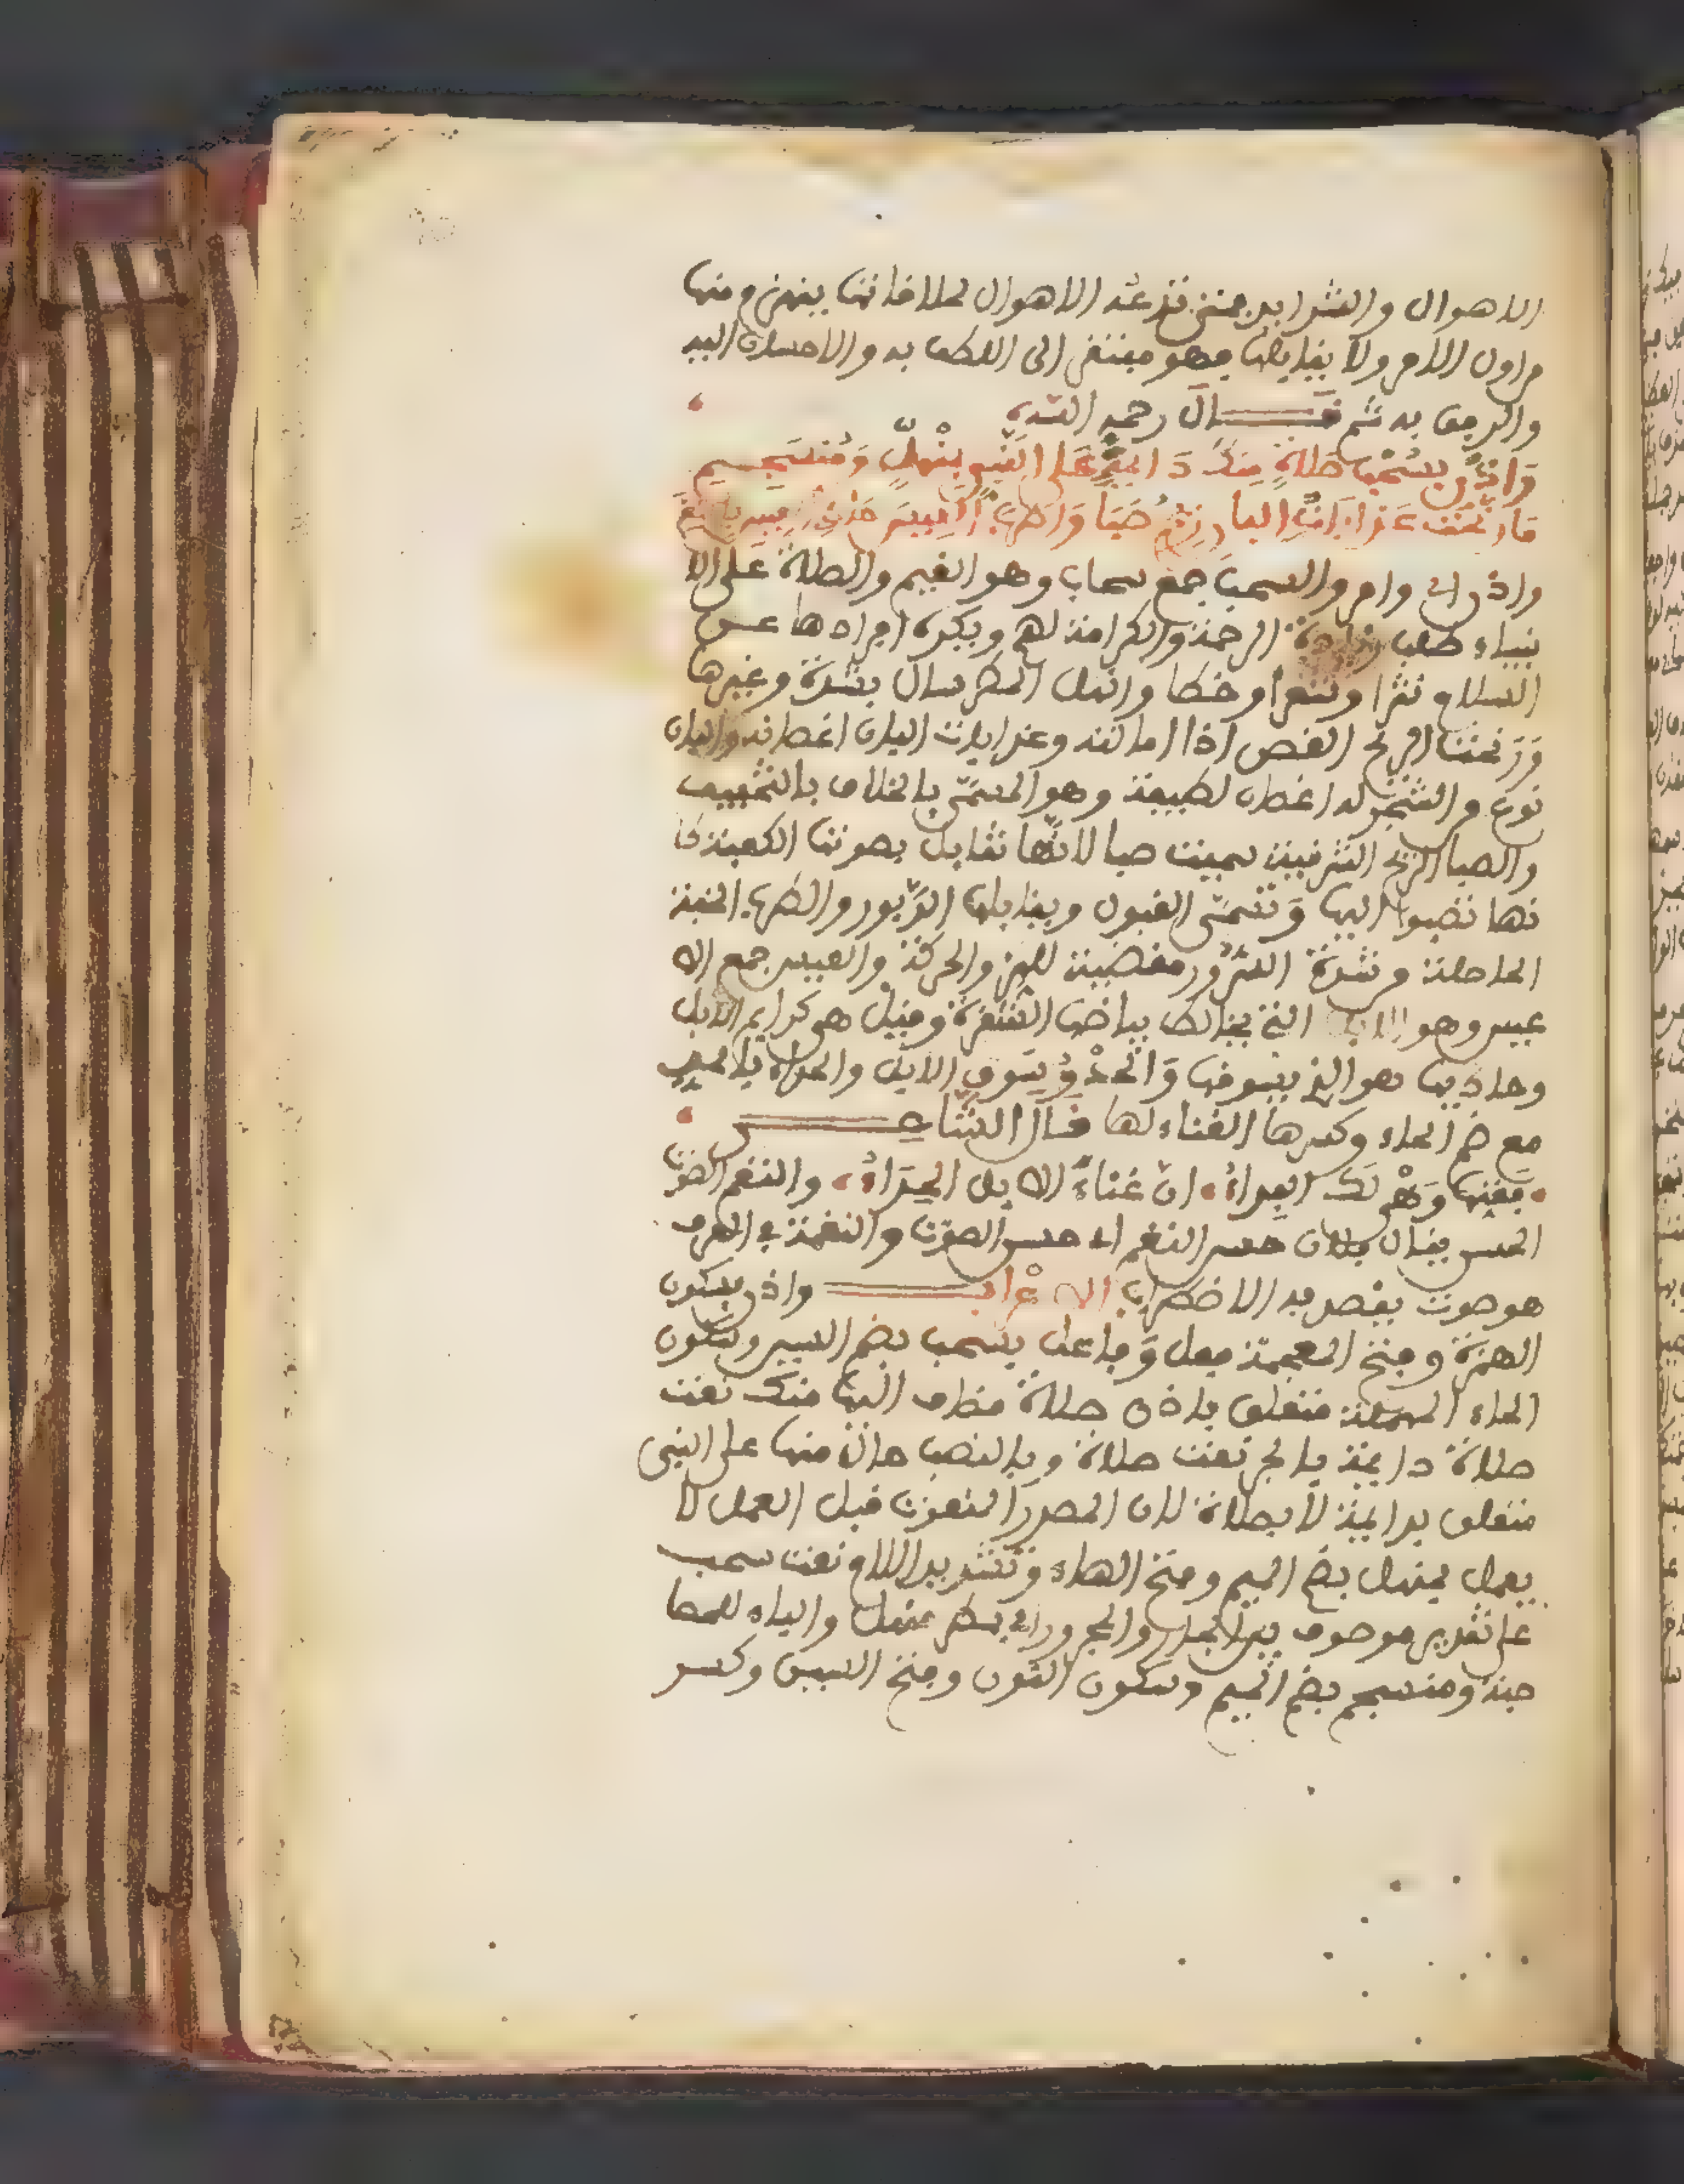 الاهوال والشدايد فمتى تدعه الاهوال لملاقاتها ينهزم منها
من اول الامر ولا يقابلها فهو مفتقر الى اللطف به والاحسان اليه
والرفق به ثم قال رحمه الله
وَاذَنْ بِسُحْبِ صَلَاةٍ مِنْكَ دَائِمَةٍ عَلَى النَّبِي بِمُنْهَلٍّ وَمُنْسَجِمِ
مَا رَنَّحَتْ عَذَبَاتِ البَانِ رِيحُ صَبًا وَاطْرَبَ الْعِيسَ حَادِي الْعِيسِ بِالنَّغَمِ
واذن اي وامر والسحب جمع سحاب وهو الغيم والصلاة على الا
نبياء طلب زيادة الرحمة والكرامة لهم ويكره افرادها عن
السلام نثرا وشعرا وخطا وانهل المطر سال بشدة وغيرها
وَرَنَّحت الريح الغصن اذا امالته وعذابات البان اغصانه والبان
نوع من الشجر له اغصان لطيفة وهو المسمّى بالخلاف بالتخفيف
والصبا الريح الشرقية سميت صبا لانّها تقابل بصوتها الكعبة كا
نها تصبوا اليها وَتسمّى القبول ويقابلها الدّبور والطرب الخفة
الحاصلة من شدة السّرور مفضية للهز والحركة والعيس جمع الا
عيس وهو الابل التي يخالط بياضها الشقرة وقيل هي كرايم الابل
وحاديها هو الذي يسوقها وَالحدْوُ سَوق الابل والحداء بالمد
مع ضم الحاء وكسرها الغناء لها قال الشاعر
فغنها وَهْي لك الفداء ان غناءَ الابل الحداءُ والنغم الصوت
الحسن يقال فلان حسن النغم اي حسن الصوت والنغمة في العرف
هو صوت يقصد به الاضطراب الاعراب واذن بسكون
الهمزة وفتح المعجمة فعل وَفاعل بسحب بضم السين وسكون
الحاء المهملة متعلق باذن صلاة مضاف اليها منك نعت
صلاة دايمة بالجر نعت صلاة وبالنصب حال منها على النبي
متعلق بدايمة لا بصلاة لان المصدر المنعوت قبل العمل لا
يعمل بمنهل بضم الميم وفتح الهاء وتشديد اللام نعت سحب
على تقدير موصوف بين الجار والمجرور اي بمطر منهل والياء للمصا
حبة ومنسجم بضم الميم وسكون النون وفتح السين وكسر